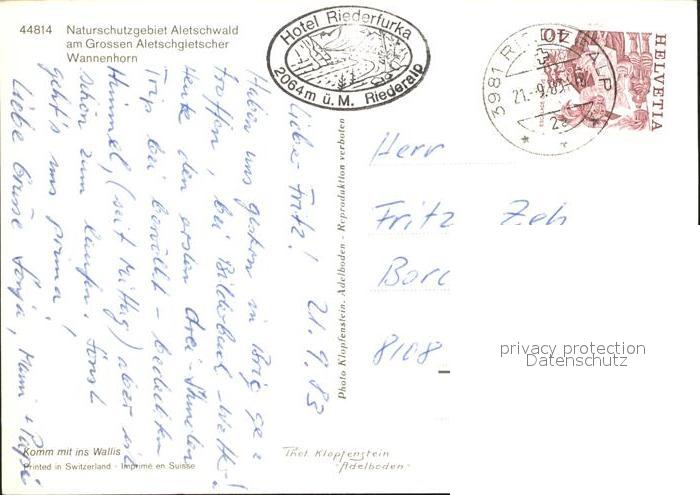 44814 Naturschutzgebiet Aletschwald
am Grossen Aletschgletscher
Wannenhorn
Hotel Riederfurka
2064m ü. M. Riederalp
3981 RIEDERALP
21.-9.83
HELVETIA
40
Liebe Fritz! 21.9.83
Haben uns gestern in Brig ge=
troffen, bei Bilderbuch-Wetter!
Heute den ersten drei-Stunden
Trip bei bewölkt - bedecktem
Himmel, (seit Mittag) aber
schön zum laufen. Sonst
geht's uns prima!
Liebe Grüsse Sonja, Mami + Papi
Photo Klopfenstein, Adelboden - Reproduktion verboten
Herr
Fritz Zeh
8108
privacy protection
Datenschutz
Komm mit ins Wallis
Printed in Switzerland - Imprimé en Suisse
Phot. Klopfenstein
"Adelboden"